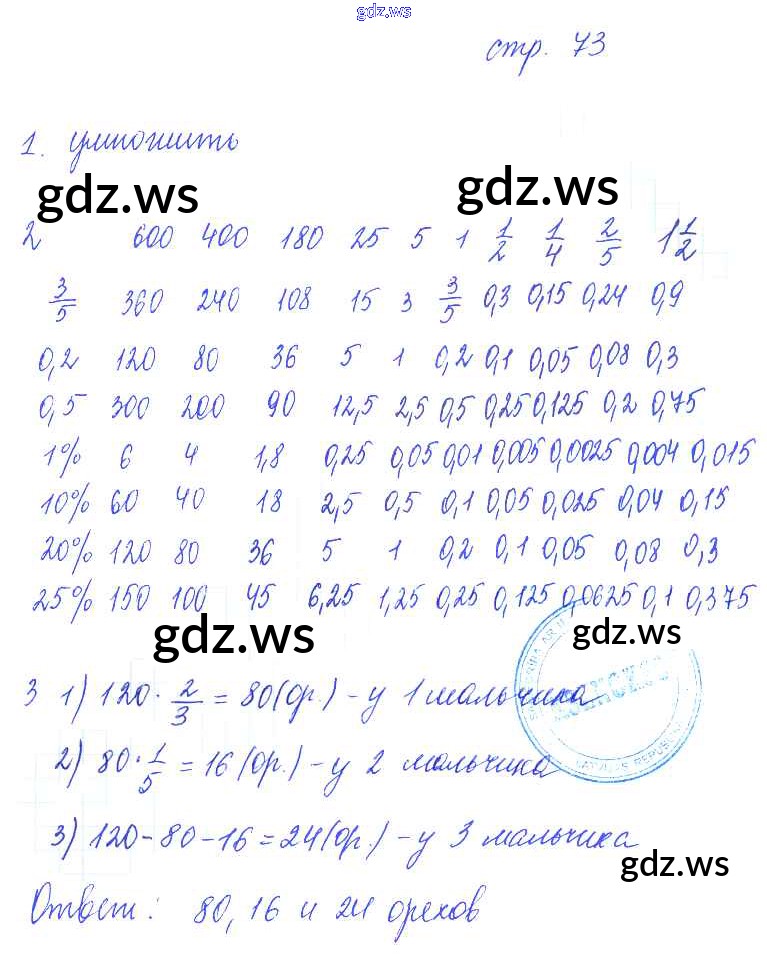 gdz.ws
стр. 73
1. умножить
gdz.ws
gdz.ws
2 600 400 180 25 5 1 1/2 1/4 2/5 1 1/2
3/5 360 240 108 15 3 3/5 0,3 0,15 0,24 0,9
0,2 120 80 36 5 1 0,2 0,1 0,05 0,08 0,3
0,5 300 200 90 12,5 2,5 0,5 0,25 0,125 0,2 0,75
1% 6 4 1,8 0,25 0,05 0,01 0,005 0,0025 0,004 0,015
10% 60 40 18 2,5 0,5 0,1 0,05 0,025 0,04 0,15
20% 120 80 36 5 1 0,2 0,1 0,05 0,08 0,3
25% 150 100 45 6,25 1,25 0,25 0,125 0,0625 0,1 0,375
gdz.ws
gdz.ws
3 1) 120 · 2/3 = 80 (ор.) - у 1 мальчика
2) 80 · 1/5 = 16 (ор.) - у 2 мальчика
3) 120 - 80 - 16 = 24 (ор.) - у 3 мальчика
gdz.ws
Ответ: 80, 16 и 24 орехов